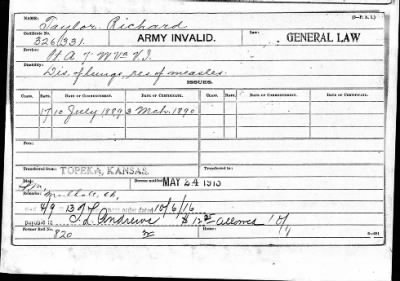 (3—P. S. I.)
NAME: Taylor Richard
Certificate No. 326,331. ARMY INVALID. Law: GENERAL LAW
Service: H A 7 W Va V. I.
Disability: Dis. of lungs, res of measles.
ISSUES.
CLASS. RATE. DATE OF COMMENCEMENT. DATE OF CERTIFICATE. CLASS. RATE. DATE OF COMMENCEMENT. DATE OF CERTIFICATE.
17 10 July 1889 3 Mch. 1890
Transferred from TOPEKA, KANSAS
Died: Bureau notified: MAY 24 1913
Remarks:
4/9 - 13 10/6/16
C. L. Andrews $12 allowed
Former Roll No. 820 Home: